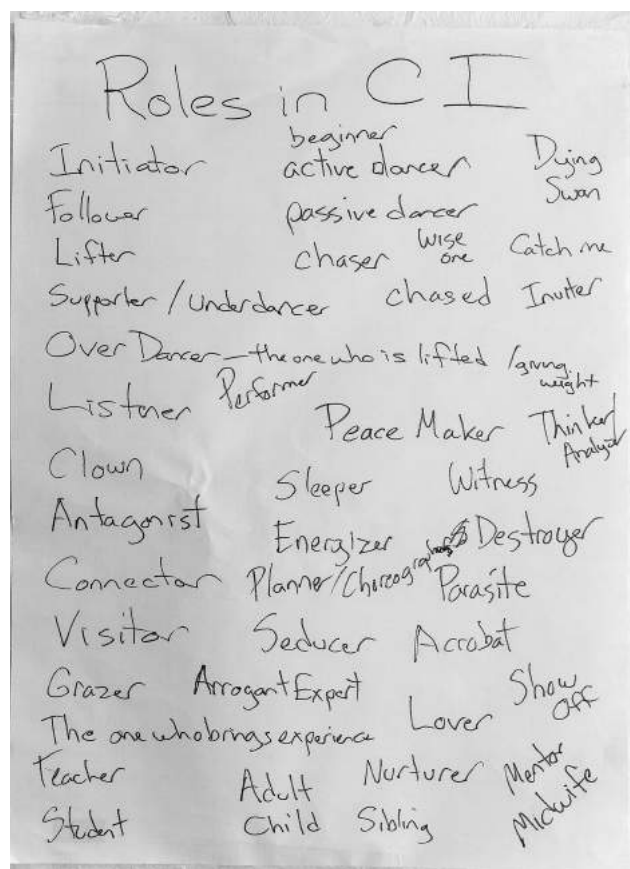 Roles in CI
beginner
Initiator active dancer Dying
Swan
Follower passive dancer
Lifter chaser wise
one Catch me
Supporter / Underdancer chased Inviter
Over Dancer – the one who is lifted / giving
weight
Listener Performer
Peace Maker Thinker/
Analyst
Clown Sleeper Witness
Antagonist Energizer Destroyer
Connector Planner/Choreographer Parasite
Visitor Seducer Acrobat
Grazer Arrogant Expert Show
Off
The one who brings experience Lover
Teacher Adult Nurturer Mentor
Student Child Sibling Midwife